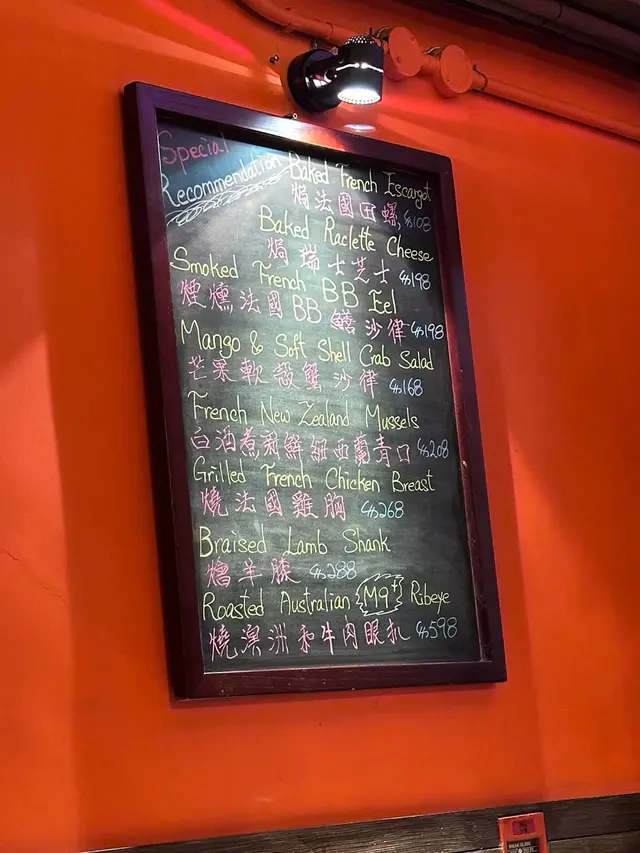 Special
Recommendation
Baked French Escargot
焗法國田螺 $108
Baked Raclette Cheese
焗瑞士芝士 $198
Smoked French BB Eel
煙燻法國BB鱔沙律 $198
Mango & Soft Shell Crab Salad
芒果軟殼蟹沙律 $168
French New Zealand Mussels
白酒煮新鮮紐西蘭青口 $208
Grilled French Chicken Breast
燒法國雞胸 $268
Braised Lamb Shank
燴羊膝 $288
Roasted Australian M9+ Ribeye
燒澳洲和牛肉眼扒 $598
BREAK GLASS